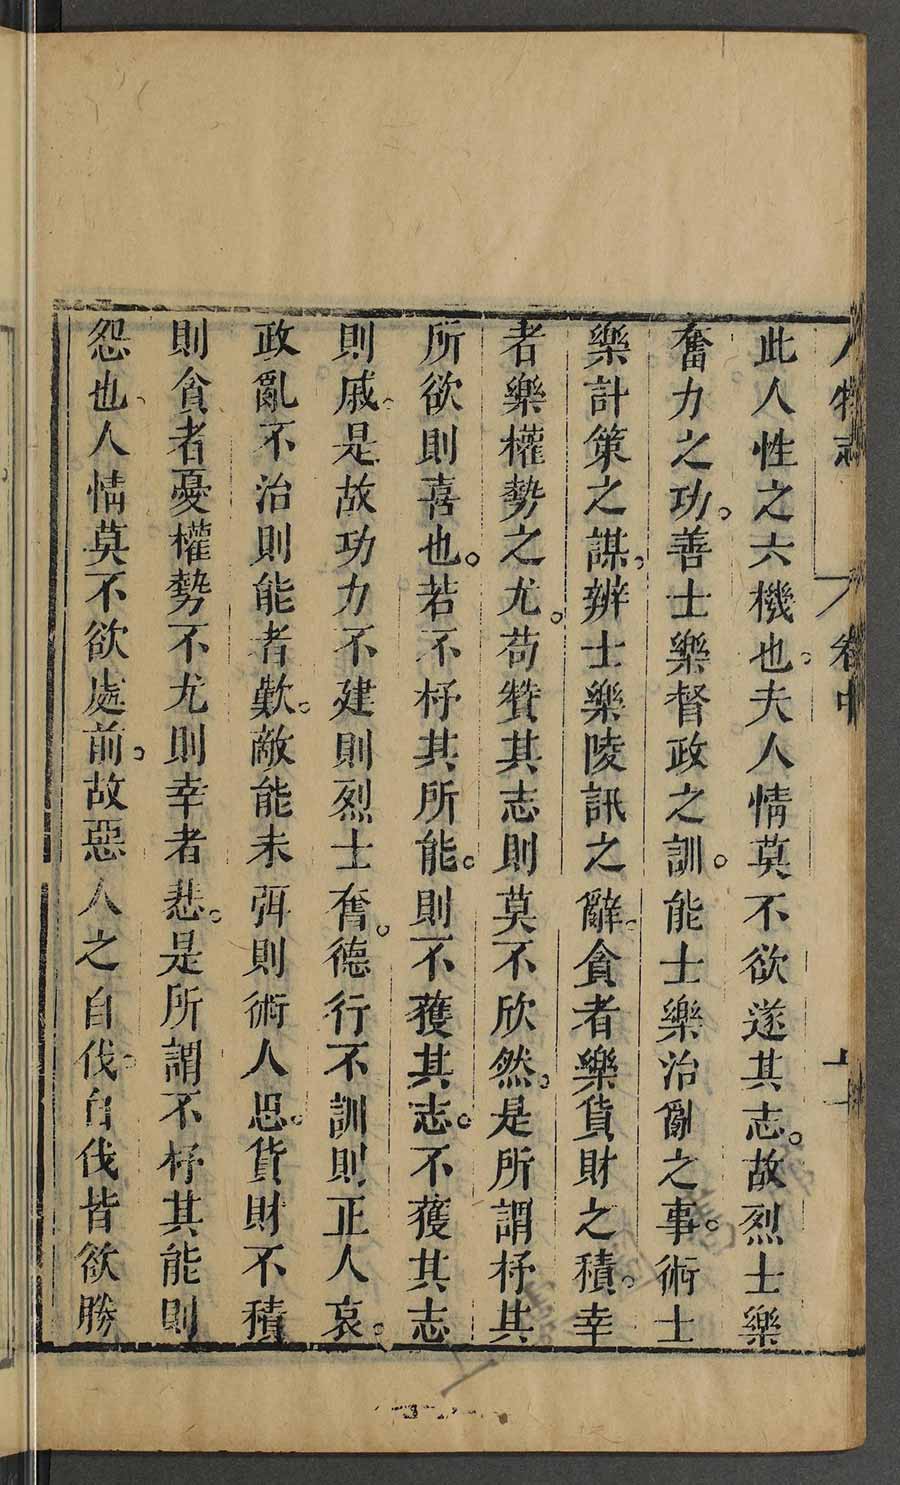 人物志
卷中
十一
此人性之六機也夫人情莫不欲遂其志故烈士樂
奮力之功善士樂督政之訓能士樂治亂之事術士
樂計策之謀辨士樂陵訊之辭貪者樂貨財之積幸
者樂權勢之尤苟贊其志則莫不欣然是所謂杼其
所欲則喜也若不杼其所能則不獲其志不獲其志
則戚是故功力不建則烈士奮德行不訓則正人哀
政亂不治則能者歎敵能未弭則術人思貨財不積
則貪者憂權勢不尤則幸者悲是所謂不杼其能則
怨也人情莫不欲處前故惡人之自伐自伐皆欲勝